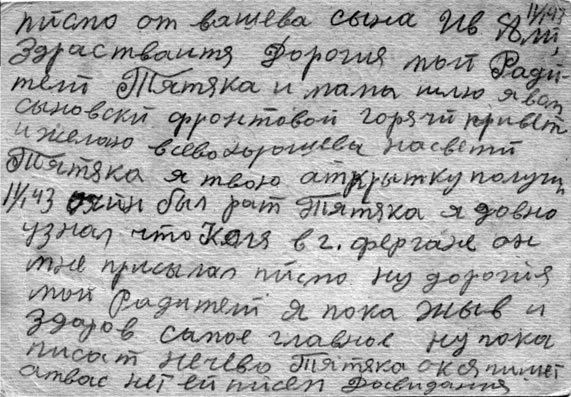 писмо от вашева сына Ив Яли, 11/I 43
Здраствайтя Дорогия мои Радит
тели Тятяка и мама шлю я вам
сыновски фронтовой горячи привет
и желаю всево хорошева насвети
Тятяка я твою аткрытку получи
11/I 43 очин был рат Тятяка я довно
узнал что Коля в г. фергане он
мне присылал писмо ну дорогия
мои Радители я пока жыв и
здаров самое главное ну пока
писат нечево Тятяка окся пишет
атвас нет ей писем Досвидания